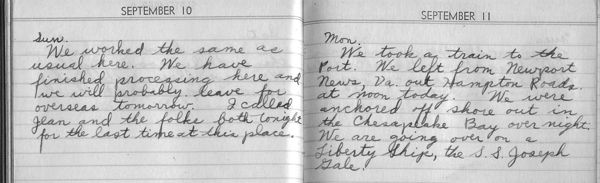 SEPTEMBER 10
Sun.
We worked the same as
usual here. We have
finished processing here and
we will probably leave for
overseas tomorrow. I called
Jean and the folks both tonight
for the last time at this place.
SEPTEMBER 11
Mon.
We took a train to the
Port. We left from Newport
News, Va. out Hampton Roads
at noon today. We were
anchored off shore out in
the Chesapeake Bay over night.
We are going over on a
Liberty Ship, the S.S. Joseph
Gale.